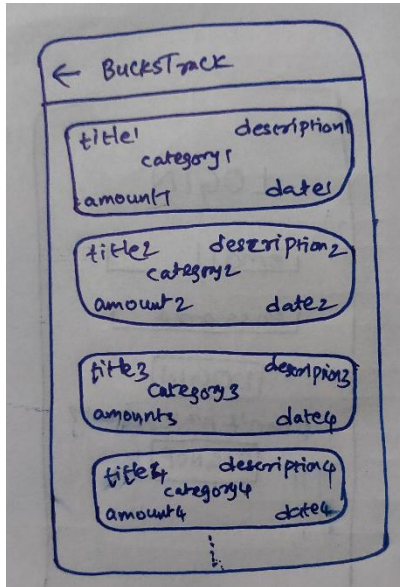 ← BucksTrack
title1 description1
category1
amount1 date1
title2 description2
category2
amount2 date2
title3 description3
category3
amount3 date4
title4 description4
category4
amount4 date4